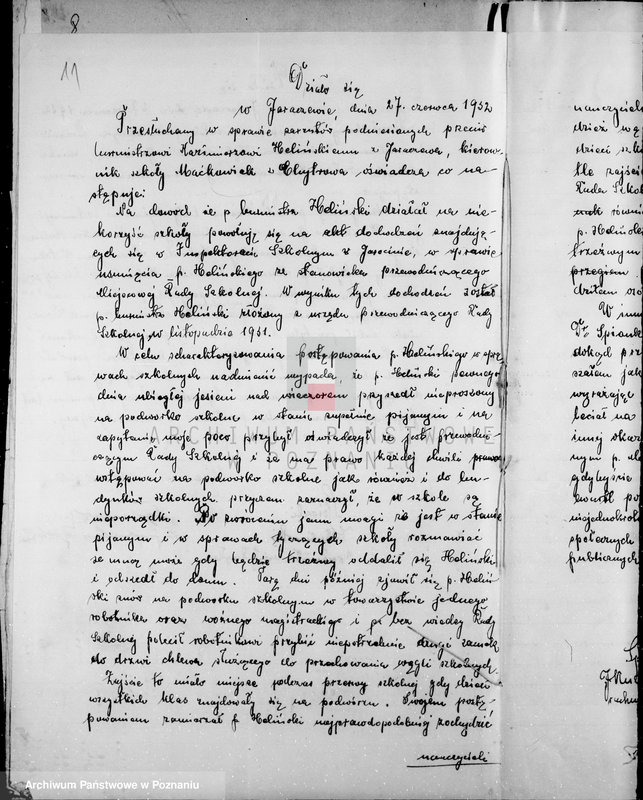 8
11
Działo się
w Jaraczewie, dnia 27. czerwca 1932
Przesłuchany w sprawie zarzutów podniesionych przeciw
burmistrzowi Kazimierzowi Helińskiemu z Jaraczewa, kierow-
nik szkoły Maćkowiak z Chytrowa oświadcza co na-
stępuje:
Na dowód że p. burmistrz Heliński działał na nie-
korzyść szkoły powołuję się na akt dochodzeń znajdują-
cych się w Inspektoracie Szkolnym w Jarocinie, w sprawie
usunięcia p. Helińskiego ze stanowiska przewodniczącego
Miejscowej Rady Szkolnej. W wyniku tych dochodzeń został
p. burmistrz Heliński złożony z urzędu przewodniczącego Rady
Szkolnej w listopadzie 1931.
W celu scharakteryzowania postępowania p. Helińskiego w spra-
wach szkolnych nadmienić wypada, że p. Heliński pewnego
dnia ubiegłej jesieni nad wieczorem przyszedł nieproszony
na podwórko szkolne w stanie zupełnie pijanym i na
zapytanie moje poco przybył oświadczył że jest przewodni-
czącym Rady Szkolnej i że ma prawo każdej chwili
wstępować na podwórko szkolne jak również i do bu-
dynków szkolnych przyczem zaznaczył, że w szkole są
nieporządki. Po zwróceniu jemu uwagi że jest w stanie
pijanym i w sprawach tyczących szkoły rozmawiać
ze mną może gdy będzie trzeźwy oddalił się Heliński
i odszedł do domu. Parę dni później zjawił się p. Heliń-
ski znów na podwórku szkolnym w towarzystwie jednego
robotnika oraz woźnego magistrackiego i bez wiedzy Rady
Szkolnej polecił robotnikowi przybić niepotrzebnie drugi zamek
do drzwi chlewa służącego do przechowania węgli szkolnych.
Zajście to miało miejsce podczas przerwy szkolnej gdy dzieci
wszystkich klas znajdowały się na podwórzu. Swojem postę-
powaniem zamierzał p. Heliński najprawdopodobniej zohydzić
nauczycieli
nauczyciela
dzież
dzieci
tle zajść
Rada Szkol
p. Helińsk
trzeźwym
przegiem
W
dokąd prz
szałem jak
wyrażając
leciał na
innej skar
nym p.
gdybyście
niejednokrot
społecznych
publicznych
ARCHIWUM PAŃSTWOWE
W POZNANIU
Archiwum Państwowe w Poznaniu